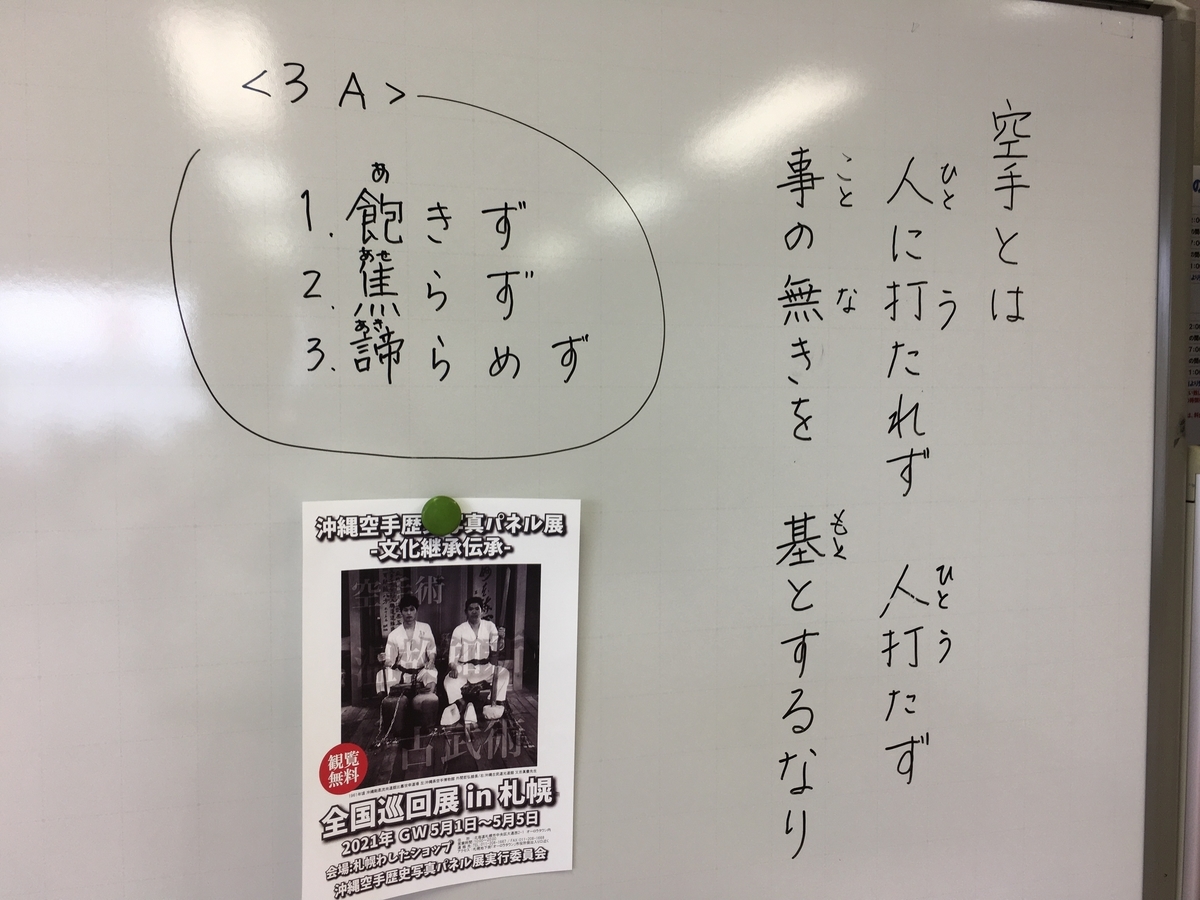 空手とは
人に打たれず 人打たず
ひと う ひと う
事の無きを 基とするなり
こと な もと
<3A>
あ
1. 飽きず
あせ
2. 焦らず
あきら
3. 諦らめず
沖縄空手歴史写真パネル展
-文化継承伝承-
空手術
古武術
観覧
無料
全国巡回展 in 札幌
2021年 GW 5月1日〜5月5日
会場:札幌わしたショップ
沖縄空手歴史写真パネル展実行委員会